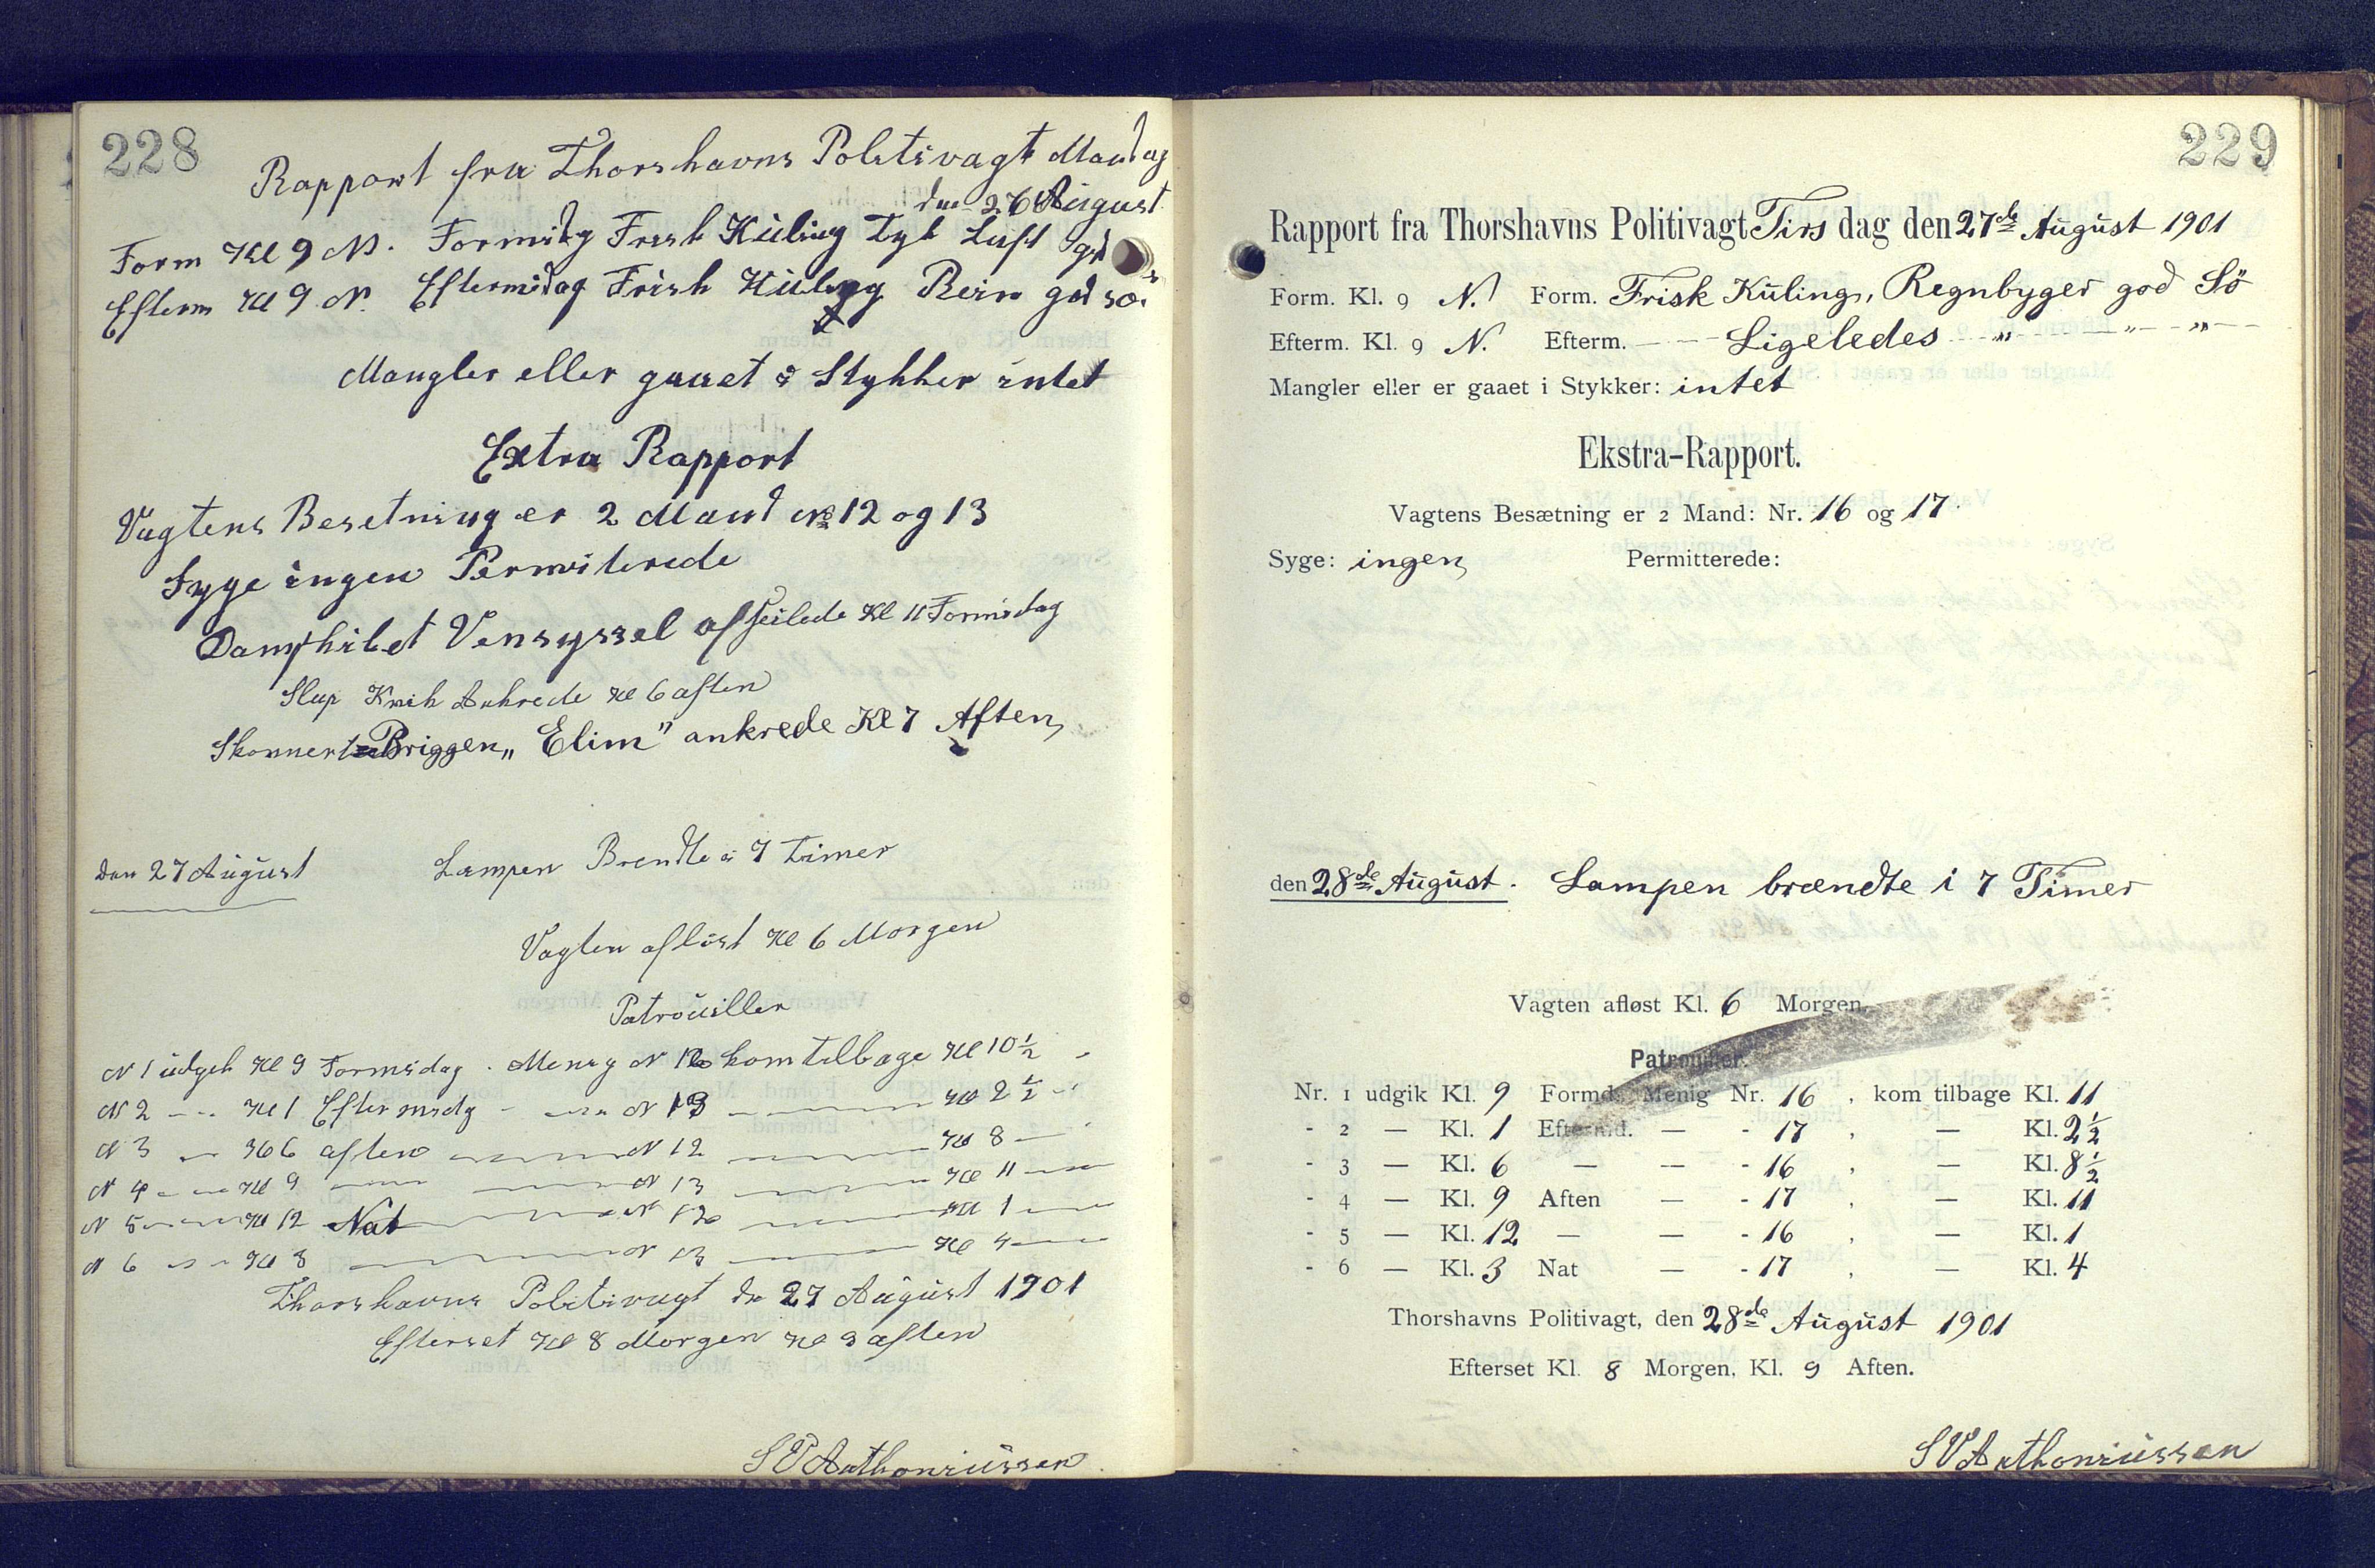 228
Rapport fra Thorshavns Politivagt Mandag
den 26 August
Form Kl 9 N. Formidg Frisk Küling Tyk Luft god
Efterm Kl 9 N. Eftermidag Frisk Küling Rein god sø
Mangler eller gaaet i Stykker intet
Extra Rapport
Vagtens Besetning er 2 Mand No 12 og 13
Syge ingen Permiterede
Dampskibet Vensyssel afseilede Kl 11 Formidag
Slup Ankrede Kl 6 aften
Skonnert=Briggen „Elim" ankrede Kl 7 Aften,
den 27 August Lampen Brendte i 7 Timer
Vagten afløst Kl 6 Morgen
Patroüiller
N 1 üdgek Kl 9 Formidag . Menig N 12 kom tilbage Kl 10 ½ -
N 2 — Kl 1 Eftermidg - — N 13 — Kl 2 ½ -
N 3 — Kl 6 aften — N 12 — Kl 8 —
N 4 — Kl 9 — N 13 — Kl 11 —
N 5 — Kl 12 Nat — N 12 — Kl 1 —
N 6 — Kl 3 — N 13 — Kl 4 —
Thorshavns Politivagt dn 27 Aügüst 1901
Efterset Kl 8 Morgen Kl 9 aften
S P Anthoniüssen
229
Rapport fra Thorshavns Politivagt Tirs dag den 27de Aügüst 1901
Form. Kl. 9 N. Form. Frisk Küling, Regnbyger god Sö
Efterm. Kl. 9 N. Efterm. — Ligeledes — „ — „ — „ —
Mangler eller er gaaet i Stykker: intet
Ekstra-Rapport.
Vagtens Besætning er 2 Mand: Nr. 16 og 17.
Syge: ingen, Permitterede:
den 28de Aügüst. Lampen brændte i 7 Timer
Vagten afløst Kl. 6 Morgen.
Patrouiller.
Nr. 1 udgik Kl. 9 Formd. Menig Nr. 16 , kom tilbage Kl. 11
- 2 — Kl. 1 Eftermd. — - 17 , — Kl. 2½
- 3 — Kl. 6 — — - 16 , — Kl. 8½
- 4 — Kl. 9 Aften — - 17 , — Kl. 11
- 5 — Kl. 12 — — - 16 , — Kl. 1
- 6 — Kl. 3 Nat — - 17 , — Kl. 4
Thorshavns Politivagt, den 28de Aügüst 1901
Efterset Kl. 8 Morgen, Kl. 9 Aften.
S P Anthoniüssen